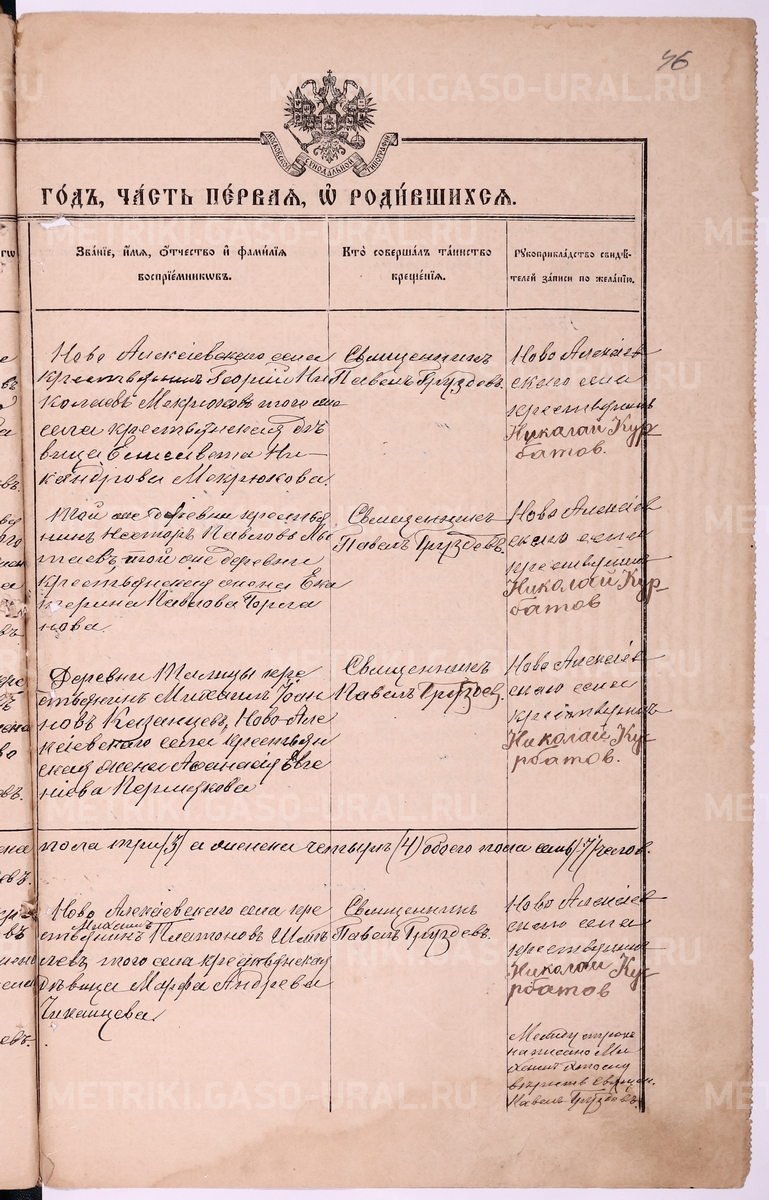 46
МОСКОВСКОЙ СѴНОДАЛЬНОЙ ТИПОГРАФІИ
ГО́ДЪ, ЧА́СТЬ ПЕ́РВАЯ, Ѽ РОДИ́ВШИХСЯ.
Зва́нїе, и҆́мя, ѻ҆́тчество и҆ фами́лїя
воспрїе́мникѡвъ.
Кто̀ соверша́лъ та́инство
креще́нїя.
Рукоприкла́дство свидѣ́-
телей за́писи по жела́нїю.
Ново Алексѣевскаго села
крестьянинъ Георгій Ни
колаевъ Мокрюковъ того же
села крестьянская дѣ
вица Елисавета Ни-
кандрова Мокрюкова.
Священникъ
Павелъ Груздевъ.
Ново Алексѣев
скаго села
крестьянинъ
Николай Кур-
батовъ.
Той же деревни крестья
нинъ Несторъ Павловъ
той же деревни
крестьянская жена Ека
терина Павлова
нова.
Священникъ
Павелъ Груздевъ.
Ново Алексѣев
скаго села
крестьянинъ
Николай Кур-
батовъ
Деревни Талицы кре
стьянинъ Михаилъ Іоан
новъ Казанцевъ, Ново-Але
ксѣевскаго села крестьян
ская жена Аѳанасія Евге
ніева Пермякова
Священникъ
Павелъ Груздев.
Ново Алексѣев
скаго села
крестьянинъ
Николай Ку-
рбатовъ.
пола три (3) а женска четыре (4) обоего пола семь (7) человѣк.
Ново Алексѣевскаго села кре
Михаилъ
стьянинъ Платоновъ
того села крестьянская
дѣвица Марѳа Андреева
Священникъ
Павелъ Груздевъ.
Ново Алексѣев
скаго села
крестьянинъ
Николай Ку-
рбатов
Между строкъ
написано Ми
хаилъ
священ.
Павелъ Груздевъ.
METRIKI.GASO-URAL.RU